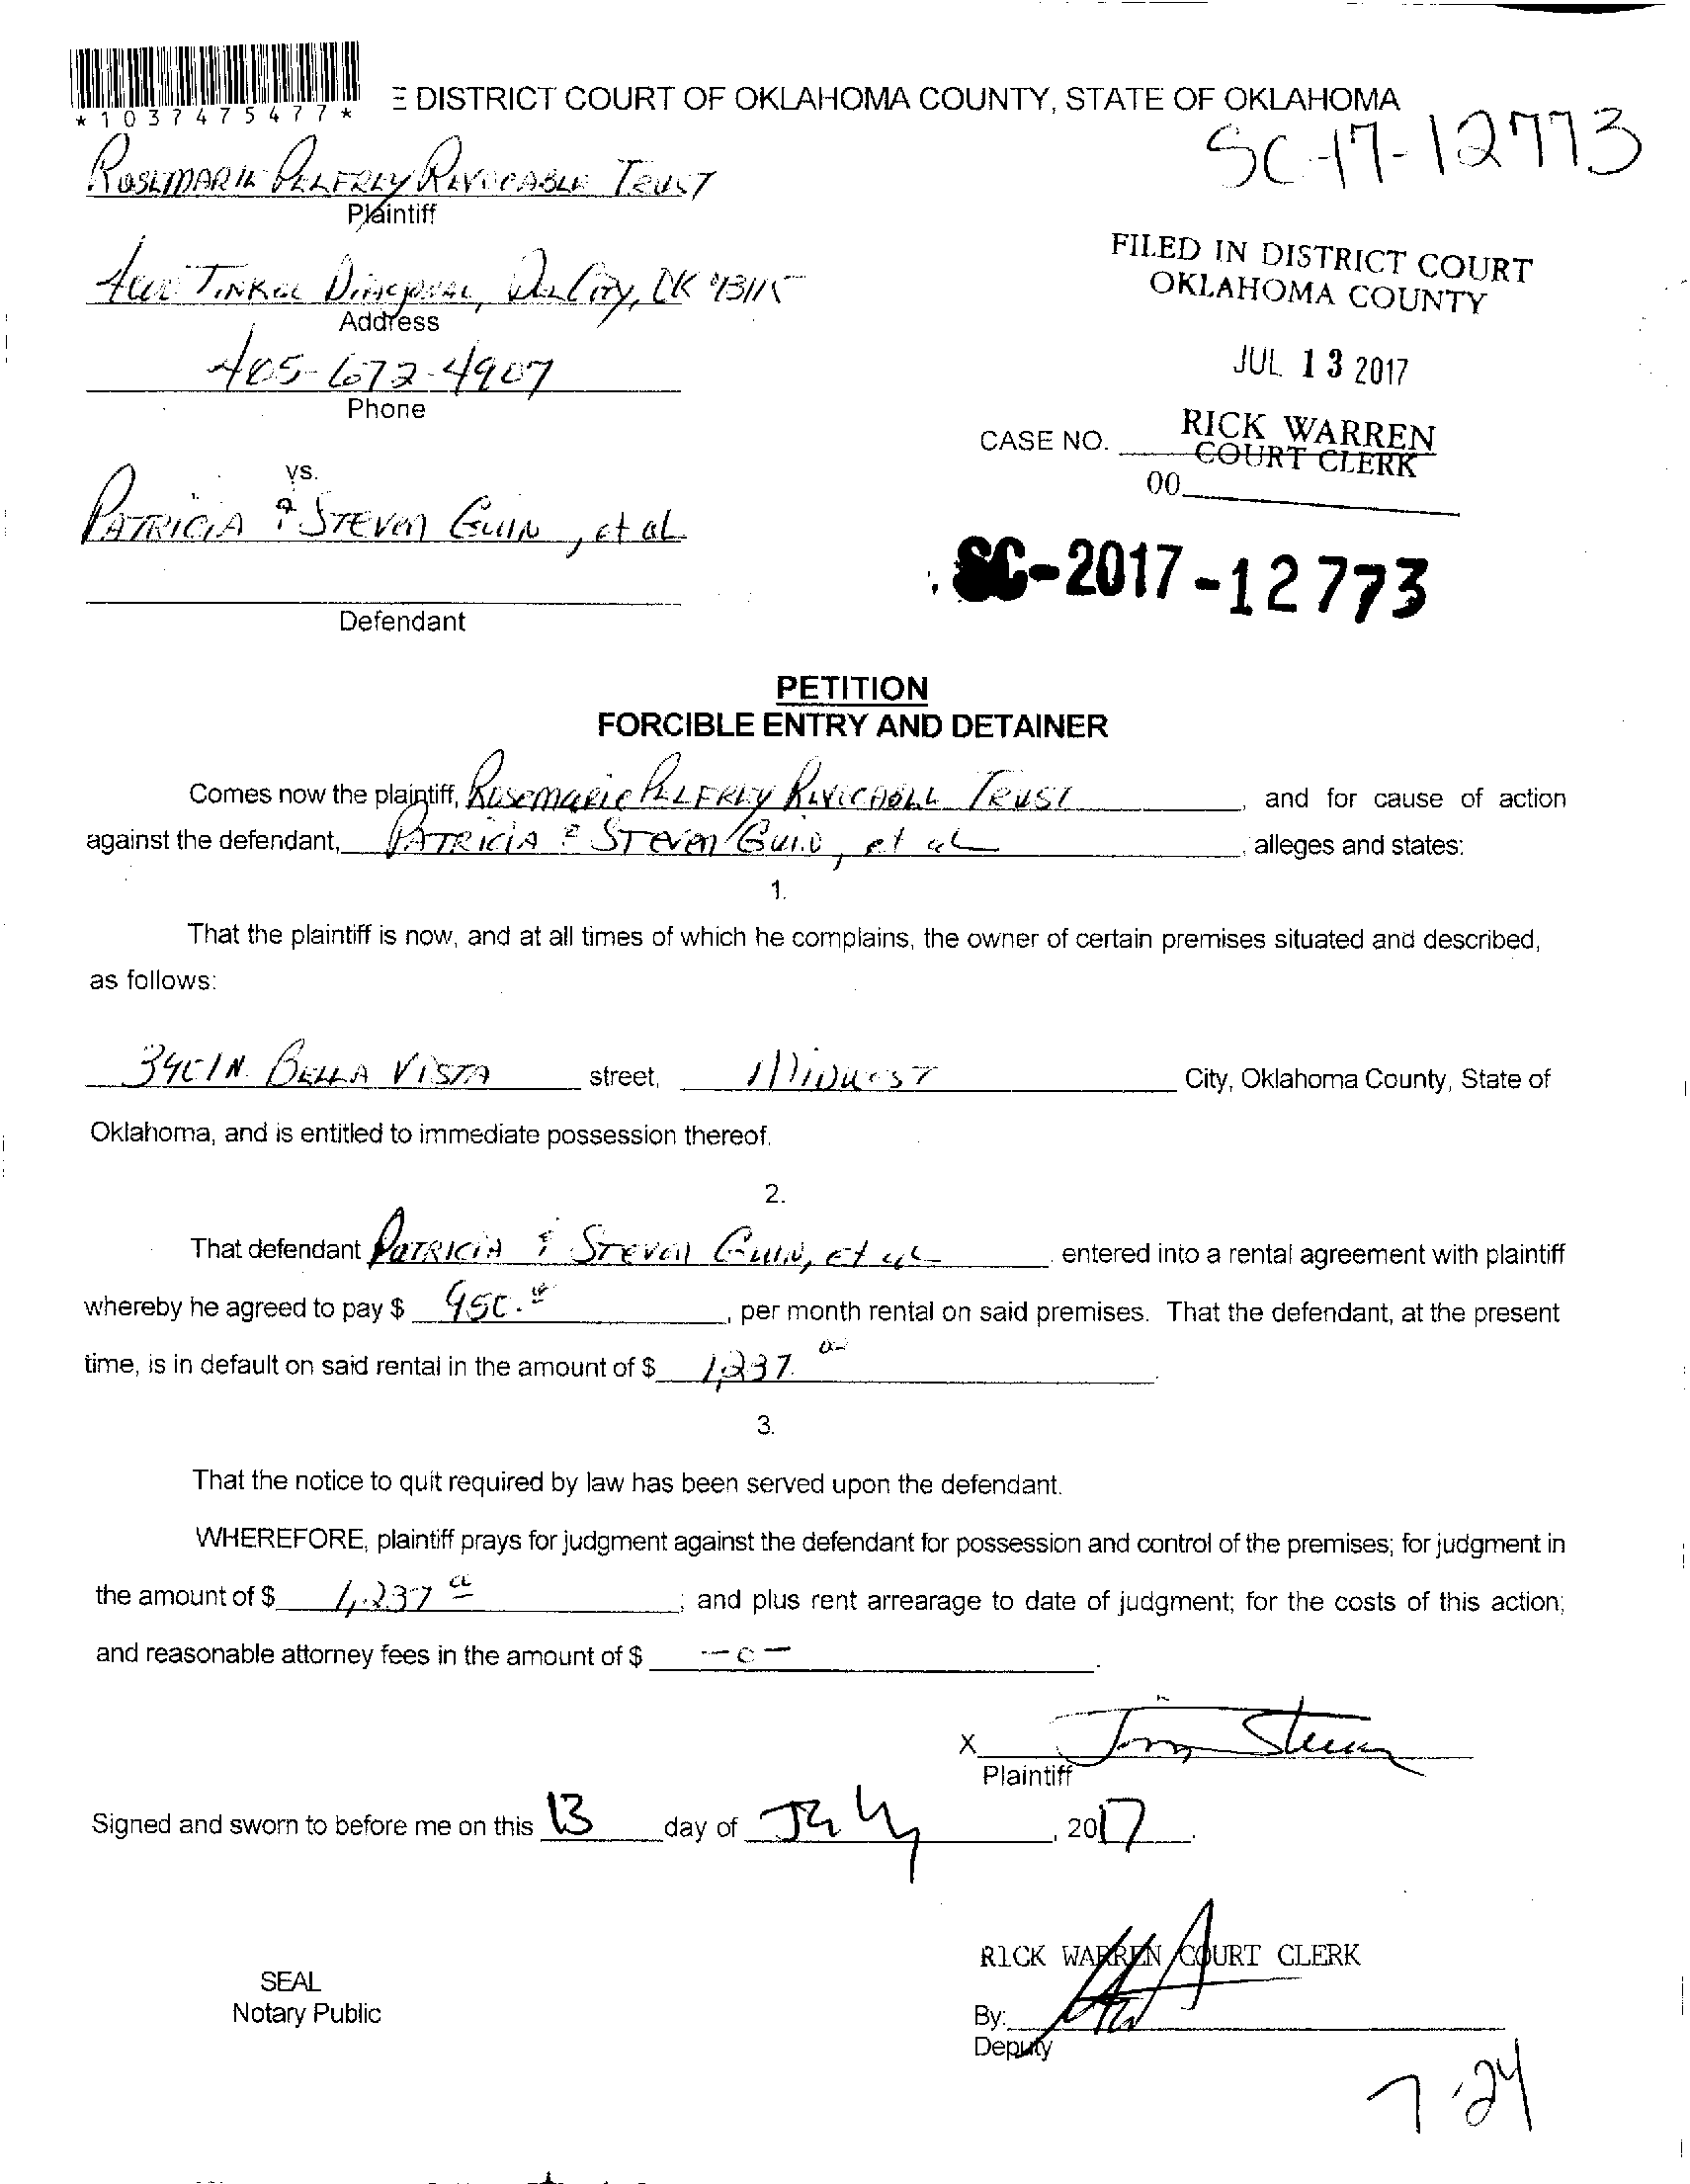 *1037475477*
E DISTRICT COURT OF OKLAHOMA COUNTY, STATE OF OKLAHOMA
SC-17-12773
ROSEMARIE PELFREY REVOCABLE TRUST
Plaintiff
TINKER DIAGONAL, DEL CITY, OK 73115
Address
405-672-4907
Phone
FILED IN DISTRICT COURT
OKLAHOMA COUNTY
JUL 13 2017
RICK WARREN
COURT CLERK
CASE NO.
00
vs.
PATRICIA & STEVEN GUIN, et al
SC-2017-12773
Defendant
PETITION
FORCIBLE ENTRY AND DETAINER
Comes now the plaintiff, ROSEMARIE PELFREY REVOCABLE TRUST, and for cause of action
against the defendant, PATRICIA & STEVEN GUIN, et al, alleges and states:
1.
That the plaintiff is now, and at all times of which he complains, the owner of certain premises situated and described,
as follows:
3401 N. BELLA VISTA street, MIDWEST City, Oklahoma County, State of
Oklahoma, and is entitled to immediate possession thereof.
2.
That defendant PATRICIA & STEVEN GUIN, et al entered into a rental agreement with plaintiff
whereby he agreed to pay $ 950.00, per month rental on said premises. That the defendant, at the present
time, is in default on said rental in the amount of $ 1,237.00.
3.
That the notice to quit required by law has been served upon the defendant.
WHEREFORE, plaintiff prays for judgment against the defendant for possession and control of the premises; for judgment in
the amount of $ 1,237.00; and plus rent arrearage to date of judgment; for the costs of this action;
and reasonable attorney fees in the amount of $ -0-.
X
Plaintiff
Signed and sworn to before me on this 13 day of July, 2017.
RICK WARREN COURT CLERK
SEAL
Notary Public
By:
Deputy
7-24